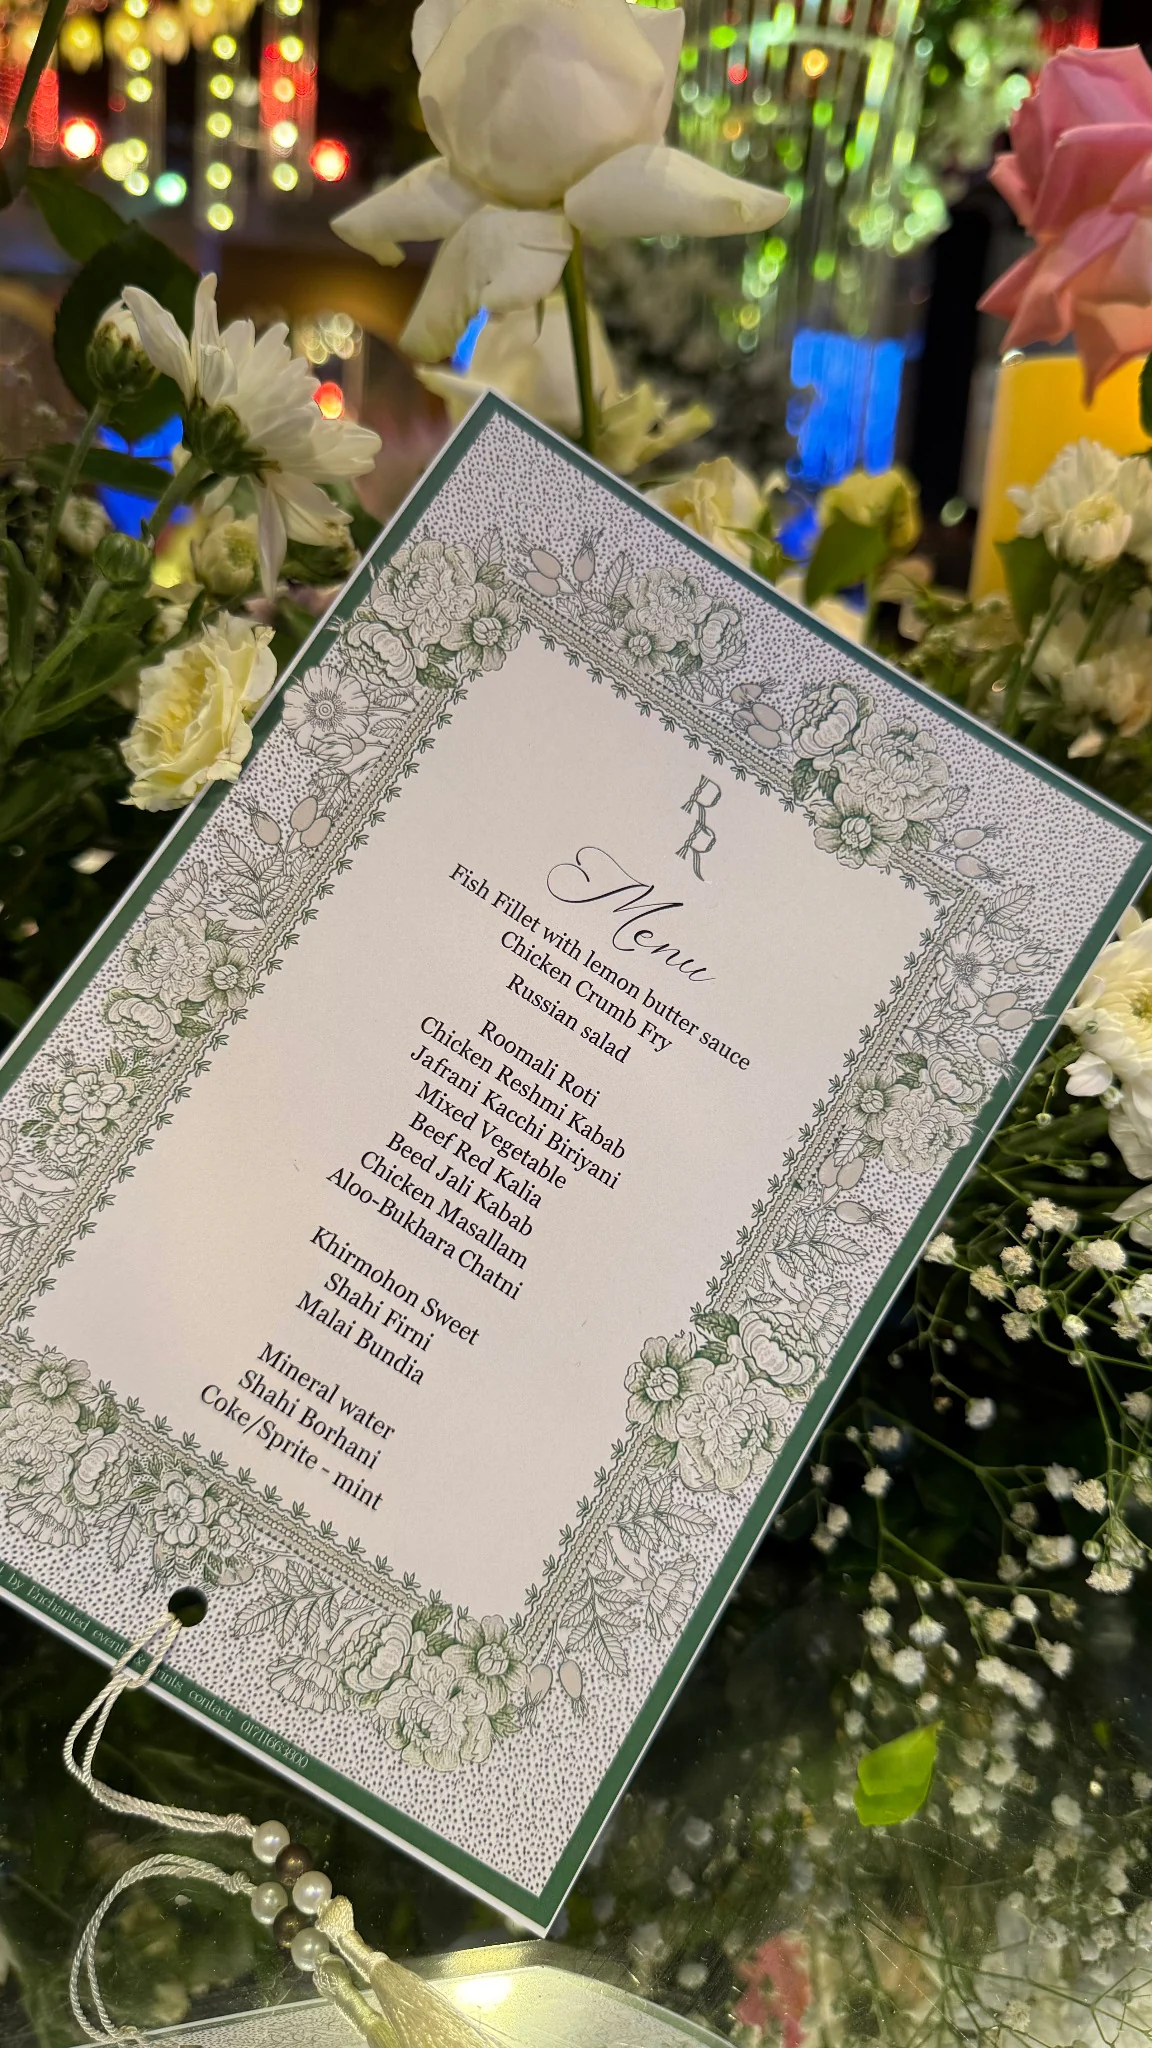 R
R
Menu
Fish Fillet with lemon butter sauce
Chicken Crumb Fry
Russian salad
Roomali Roti
Chicken Reshmi Kabab
Jafrani Kacchi Biriyani
Mixed Vegetable
Beef Red Kalia
Beed Jali Kabab
Chicken Masallam
Aloo-Bukhara Chatni
Khirmohon Sweet
Shahi Firni
Malai Bundia
Mineral water
Shahi Borhani
Coke/Sprite - mint
by Enchanted events & prints contact: 01711663800